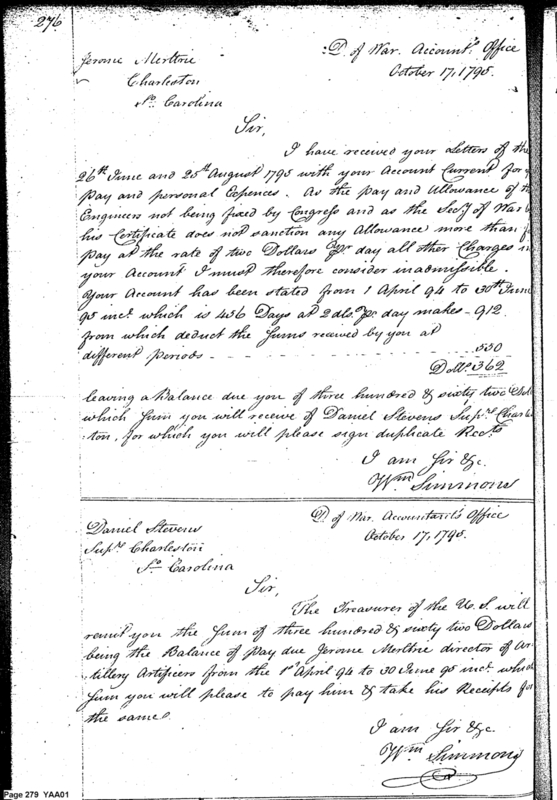 276
D. of War. Account.s Office
October 17, 1795.
Jerome Merttrie
Charleston
So. Carolina
Sir,
I have received your Letters of the
26th June and 25th August 1795 with your Account Current for
pay and personal Expences. As the pay and Allowance of
Engineers not being fixed by Congress and as the Secy of War
his Certificate does not sanction any Allowance more than
pay at the rate of two Dollars per day all other Charges in
your Account I must therefore consider inadmissible.
Your Account has been stated from 1 April 94 to 30th June
95 inct. which is 456 Days at 2 dls. per day makes - 912.
from which deduct the sums received by you at
different periods - 550
Dolls. 362
leaving a Balance due you of three hundred & sixty two Dol
which sum you will receive of Daniel Stevens Supr. Charles
ton, for which you will please sign duplicate Recpts
I am Sir &c.
Wm Simmons
D of War. Accountant's Office
October 17, 1795.
Daniel Stevens
Supr. Charleston
So. Carolina
Sir,
The Treasurer of the U. S. will
remit you the Sum of three hundred & sixty two Dollars
being the Balance of pay due Jerome Merttrie director of Ar
tillery Artificers from the 1st April 94 to 30 June 95 inct. which
Sum you will please to pay him & take his Receipts for
the same.
I am Sir &c.
Wm Simmons
Page 279 YAA01